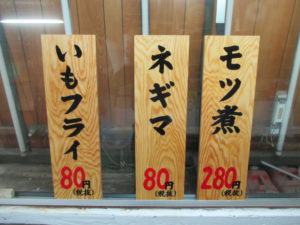 モツ煮
280円
(税抜)
ネギマ
80円
(税抜)
いもフライ
80円
(税抜)